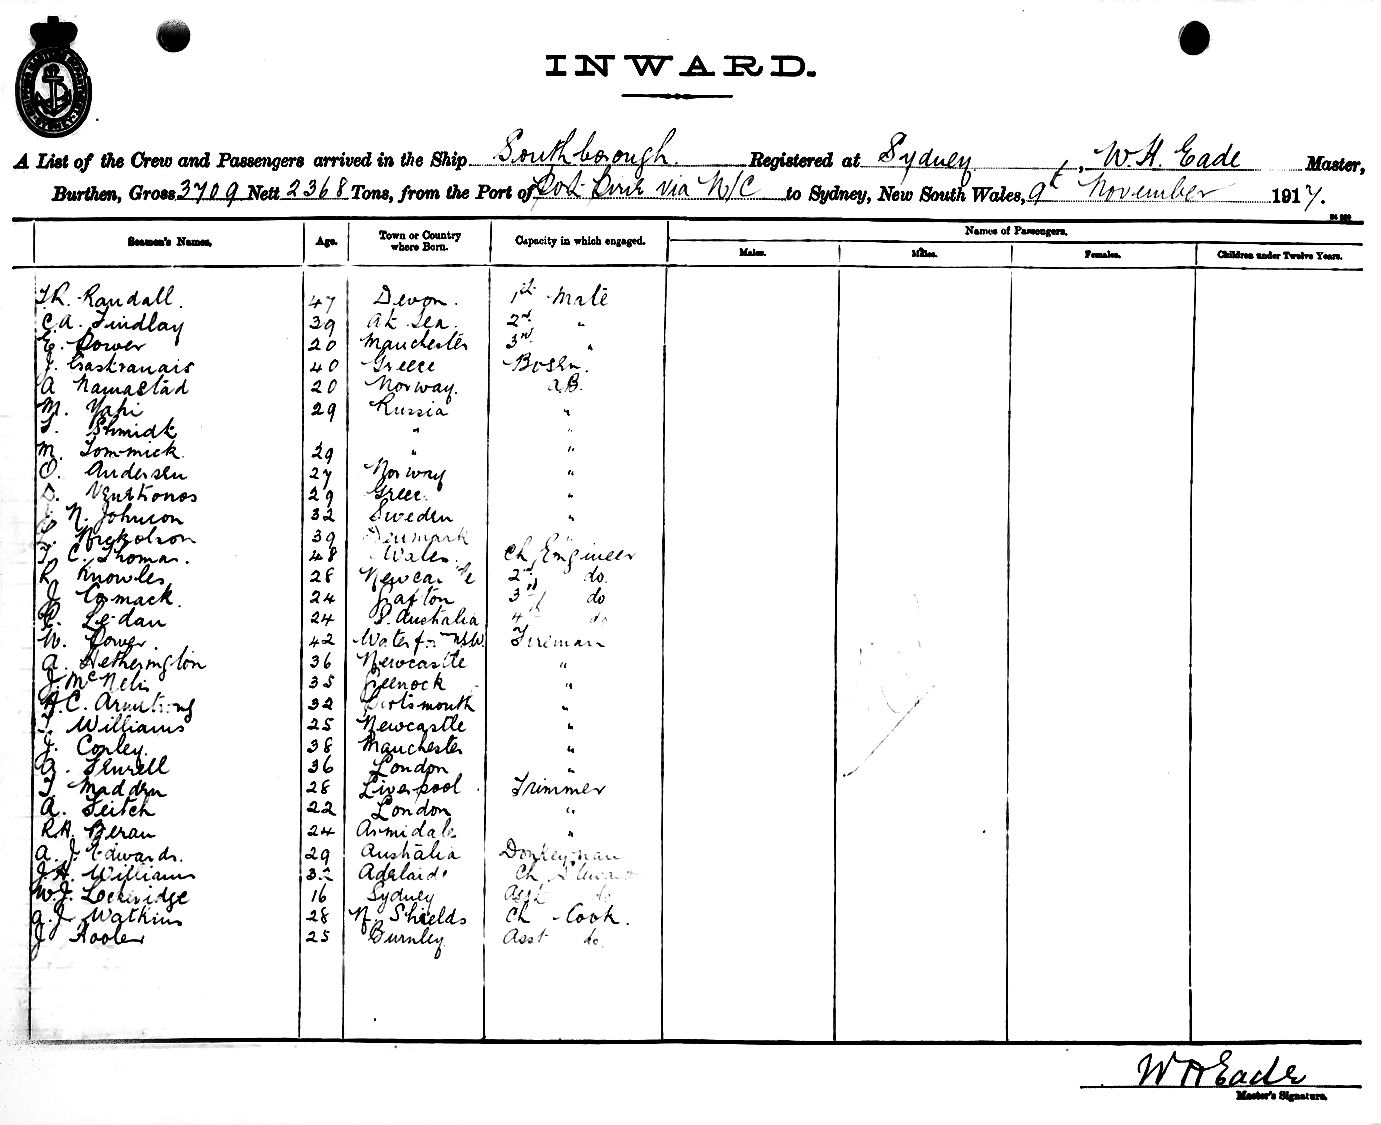 INWARD.
A List of the Crew and Passengers arrived in the Ship Southborough. Registered at Sydney, W. H. Eade Master,
Burthen, Gross 3709 Nett 2368 Tons, from the Port of Port Pirie via N/C to Sydney, New South Wales, 9th November 1917.
Seamen's Names. Age. Town or Country where Born. Capacity in which engaged. Names of Passengers.
Males. Males. Females. Children under Twelve Years.
Randall. 47 Devon. 1st Mate
C.A. Findlay 39 At Sea. 2nd "
E. Power 20 Manchester 3rd "
J. 40 Greece Bosn.
A 20 Norway. A.B.
M. 29 Russia "
Shmidt " "
M. Tommick 29 " "
O. Andersen 27 Norway "
29 Greece. "
N. Johnson 32 Sweden "
Nickolson 39 Denmark "
T. C. Thomas. 48 Wales. Ch Engineer
R. Knowles 28 Newcastle 2nd do.
J Cormack. 24 Grafton 3rd do
Ledan 24 S. Australia 4th do
W. Power 42 NSW. Fireman
A. Hetherington 36 Newcastle "
J McNelis 35 Greenock "
H.C. Armstrong 32 Portsmouth "
Williams 25 Newcastle "
J. Copley. 38 Manchester "
A. 36 London "
T. Madden 28 Liverpool Trimmer
A. Leitch 22 London "
R.A. Beran 24 Armidale "
A. J. Edwards. 29 Australia Donkeyman
J.H. Williams 32 Adelaide Ch Steward
W.J. 16 Sydney Asst do
A.J. Watkins 28 N. Shields Ch Cook.
J Hooler 25 Burnley Asst do.
W H Eade
Master's Signature.